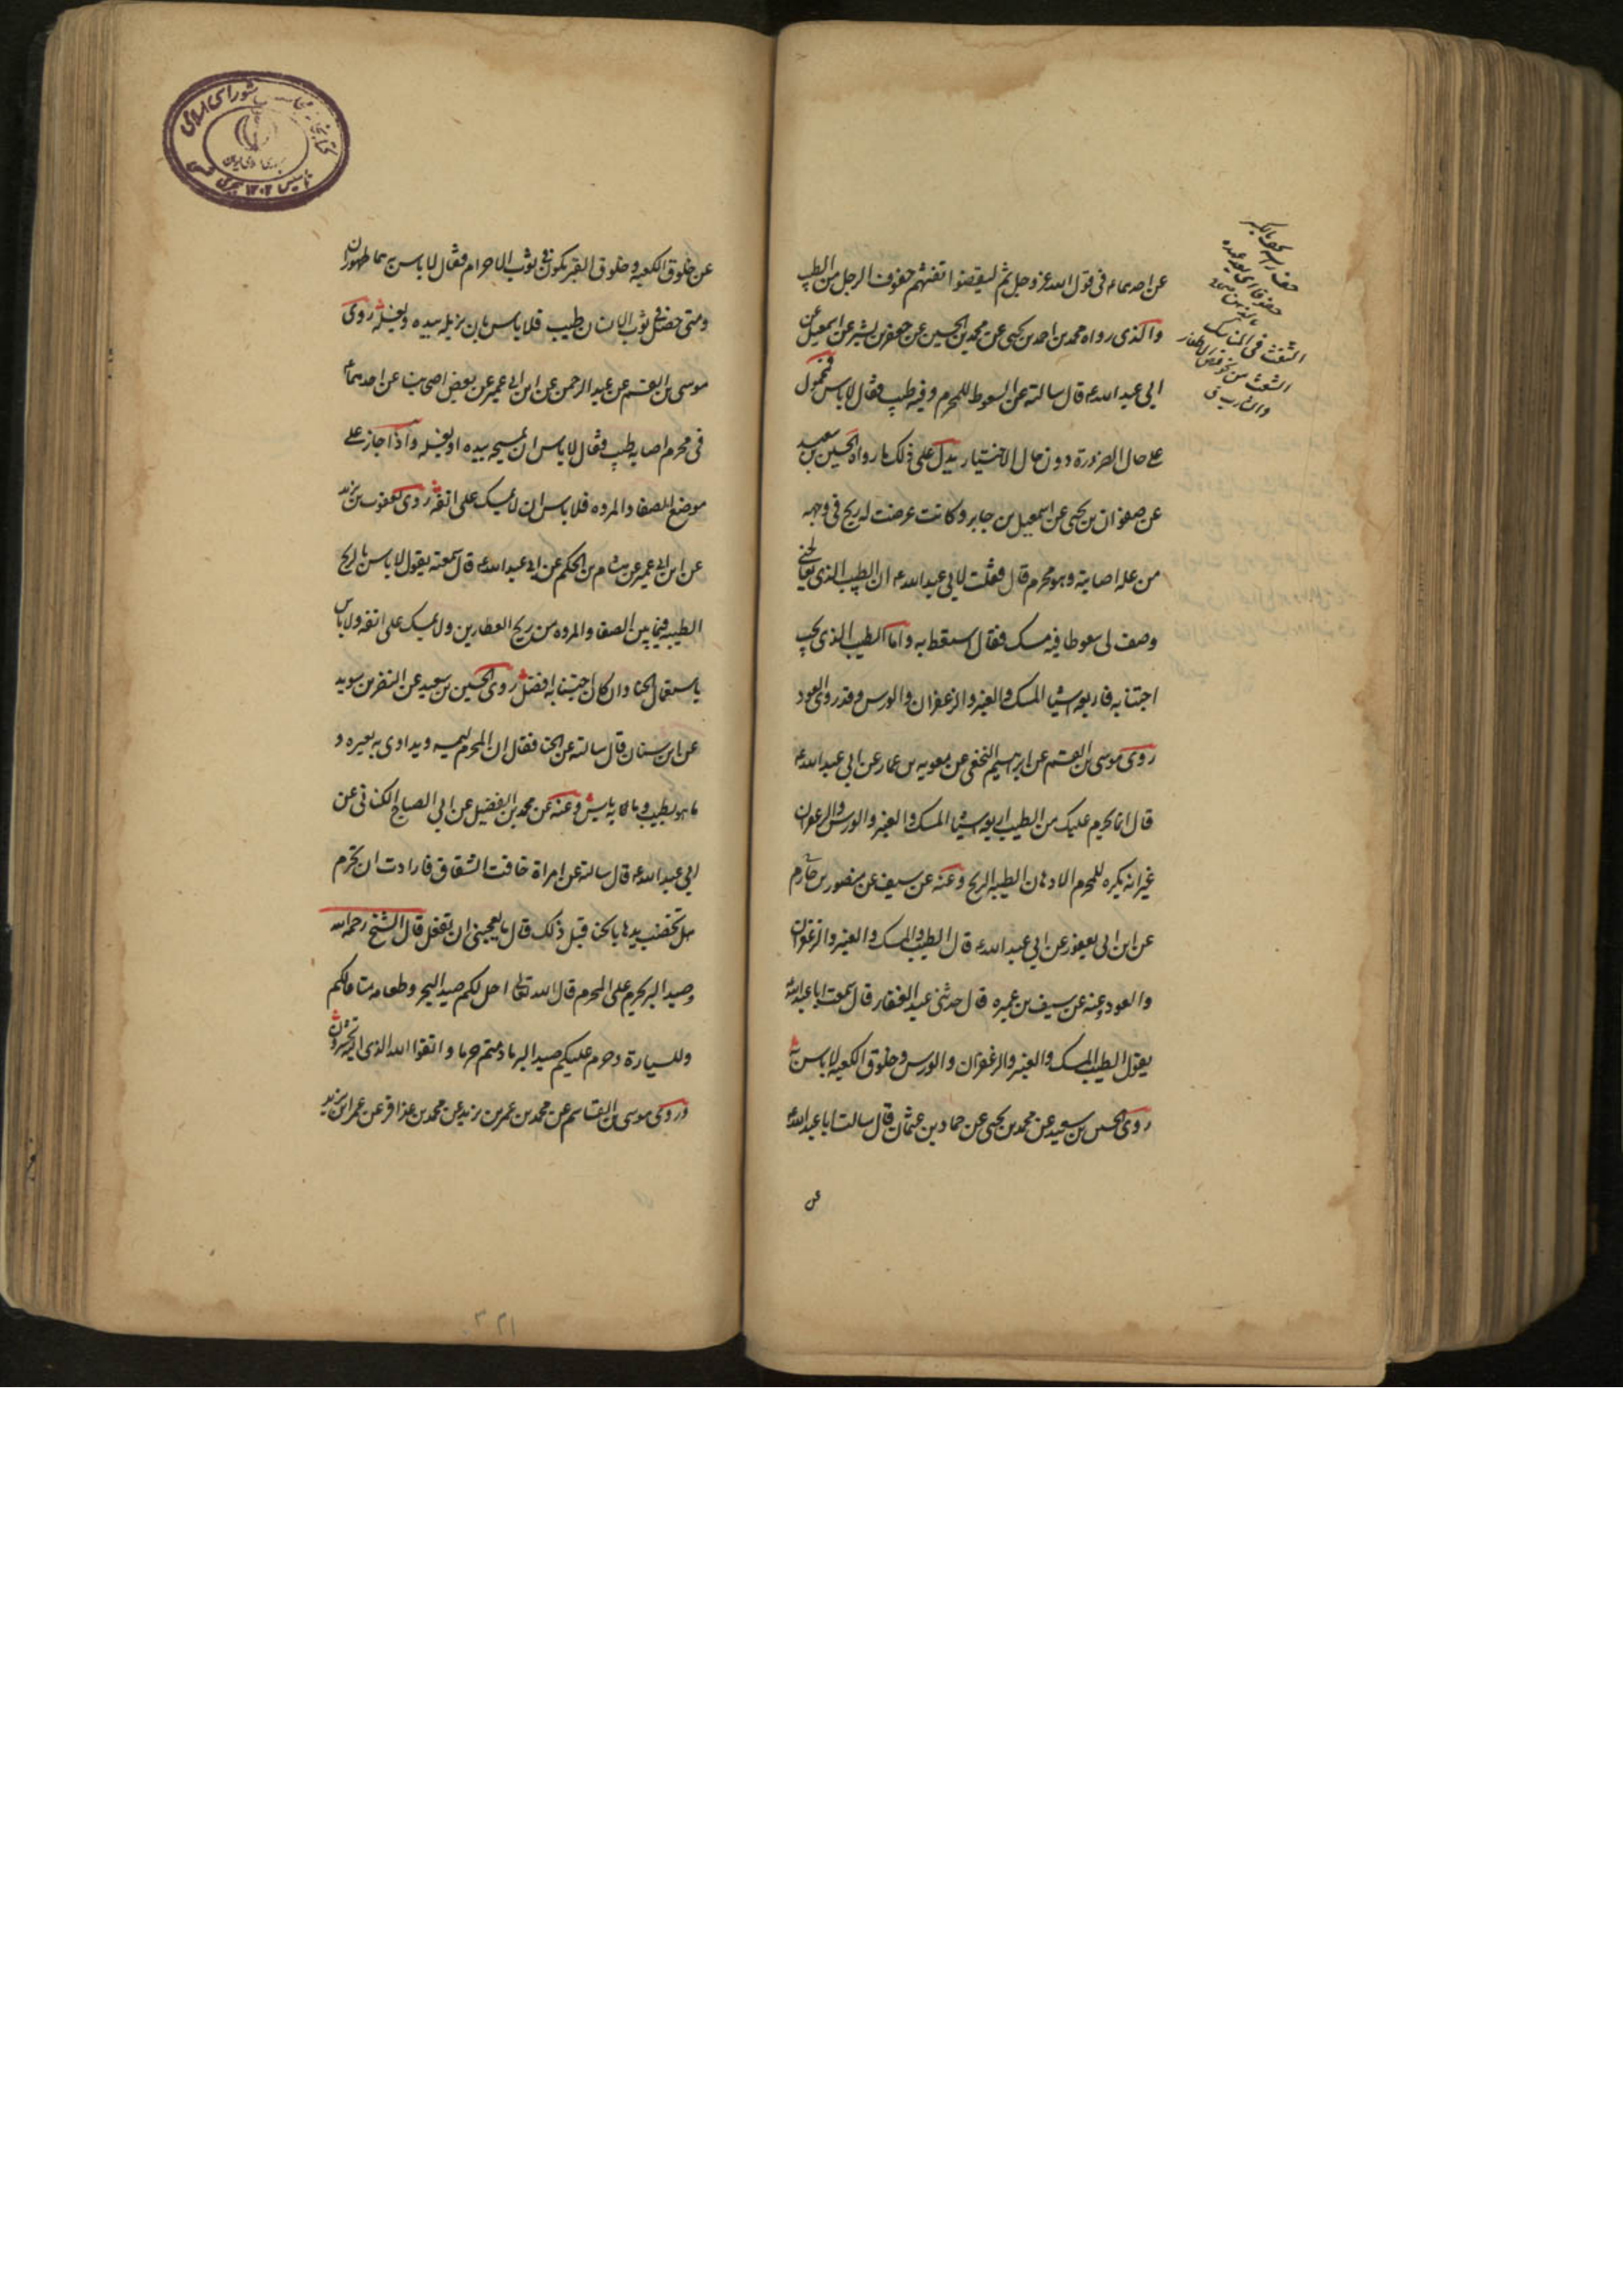 عن احدهماء فى قول الله عز وجل ثم ليقضوا تفثهم حفوف الرجل من الطيب
والذى رواه محمد بن احمد بن يحيى عن محمد بن الحسين عن جعفر بن بشير عن اسمعيل عن
ابى عبد اللهء قال سالته عن السعوط للمحرم وفيه طيب فقال لا باس فمحمول
على حال الضرورة دون حال الاختيار يدل على ذلك ما رواه الحسين بن سعيد
عن صفوان بن يحيى عن اسمعيل بن جابر وكانت عرضت له ريح فى وجهه
من علة اصابته وهو محرم قال فقلت لابى عبد اللهء ان الطبيب الذى يعالجنى
وصف لى سعوطا فيه مسك فقال استعط به واما الطيب الذى يجب
اجتنابه فاربعه اشيا المسك والعنبر والزعفران والورس وقد روى العود
روى موسى بن القسم عن ابرهيم النخعى عن معويه بن عمار عن ابى عبد اللهء
قال انما يحرم عليك من الطيب اربعه اشيا المسك والعنبر والورس والزعفران
غير انه يكره للمحرم الادهان الطيبه الريح وعنه عن سيف عن منصور بن حازم
عن ابن ابى يعفور عن ابى عبد اللهء قال الطيب المسك والعنبر والزعفران
والعود وعنه عن سيف بن عميره قال حدثنى عبد الغفار قال سمعت ابا عبد اللهء
يقول الطيب المسك والعنبر والزعفران والورس وخلوق الكعبه لا باس به
روى الحسين بن سعيد عن محمد بن يحيى عن حماد بن عثمان قال سالت ابا عبد اللهء
عن
التفث فى المناسك
الشعث من نحو قص الاظفار
والشارب ق
عن خلوق الكعبه وخلوق القبر يكون فى ثوب الاحرام فقال لا باس بهما طهوران
ومتى حصل فى ثوب الانسان طيب فلا باس بان يزيله بيده ولغسله روى
موسى بن القسم عن عبد الرحمن عن ابن ابى عمير عن بعض اصحابنا عن احدهماء
فى محرم اصابه طيب فقال لا باس ان يمسحه بيده او يغسله واذا جاز على
موضع الصفا والمروه فلا باس ان لا يمسك على انفه روى يعقوب بن يزيد
عن ابن ابى عمير عن هشام بن الحكم عن ابى عبد اللهء قال سمعته يقول لا باس بالريح
الطيبه فيما بين الصفا والمروه من ريح العطارين ولا يمسك على انفه ولا باس
باستعمال الحنا وان كان اجتنابه افضل روى الحسين بن سعيد عن النضر بن سويد
عن ابن سنان قال سالته عن الحنا فقال ان المحرم ليمسه ويداوى به بعيره و
ما هو بطيب وما به باس وعنه عن محمد بن الفضيل عن ابى الصباح الكنانى عن
ابى عبد اللهء قال سالته عن امراة خافت الشقاق فارادت ان تحرم
هل تخضب يدها بالحنا قبل ذلك قال ما يعجبنى ان تفعل قال الشيخ رحمه الله
وصيد البر يحرم على المحرم قال الله تعالى احل لكم صيد البحر وطعامه متاعا لكم
وللسيارة وحرم عليكم صيد البر ما دمتم حرما واتقوا الله الذى اليه تحشرون
وروى موسى بن القاسم عن محمد بن عمر بن يزيد عن محمد بن عذافر عن عمر ابن يزيد
شوراى اسلامى
٣٢١